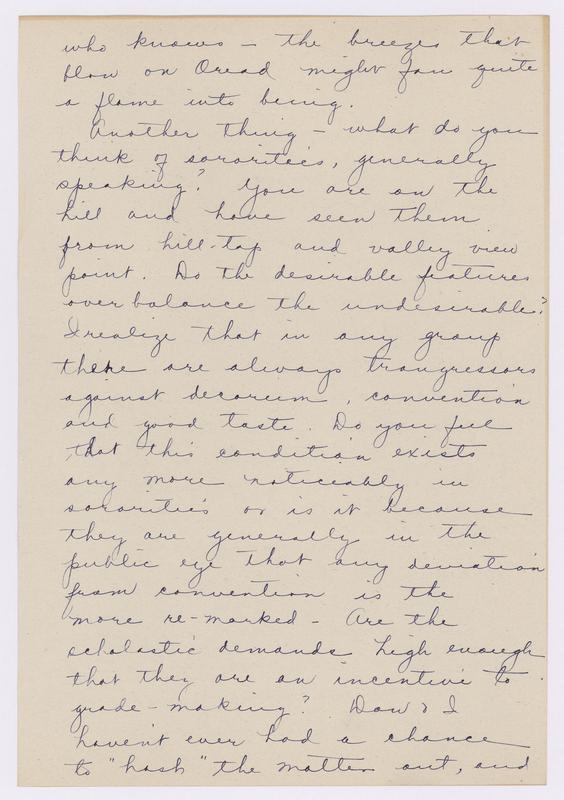 who knows — the breezes that
blow on Oread might fan quite
a flame into being.
Another thing — what do you
think of sororities, generally
speaking? You are on the
hill and have seen them
from hill-top and valley view
point. Do the desirable features
overbalance the undesirable?
I realize that in any group
there are always trangressors
against decorum, convention
and good taste. Do you feel
that this condition exists
any more noticeably in
sororities or is it because
they are generally in the
public eye that any deviation
from convention is the
more re-marked - Are the
scholastic demands high enough
that they are an incentive to
grade-making? Dow & I
haven't ever had a chance
to "hash" the matter out, and